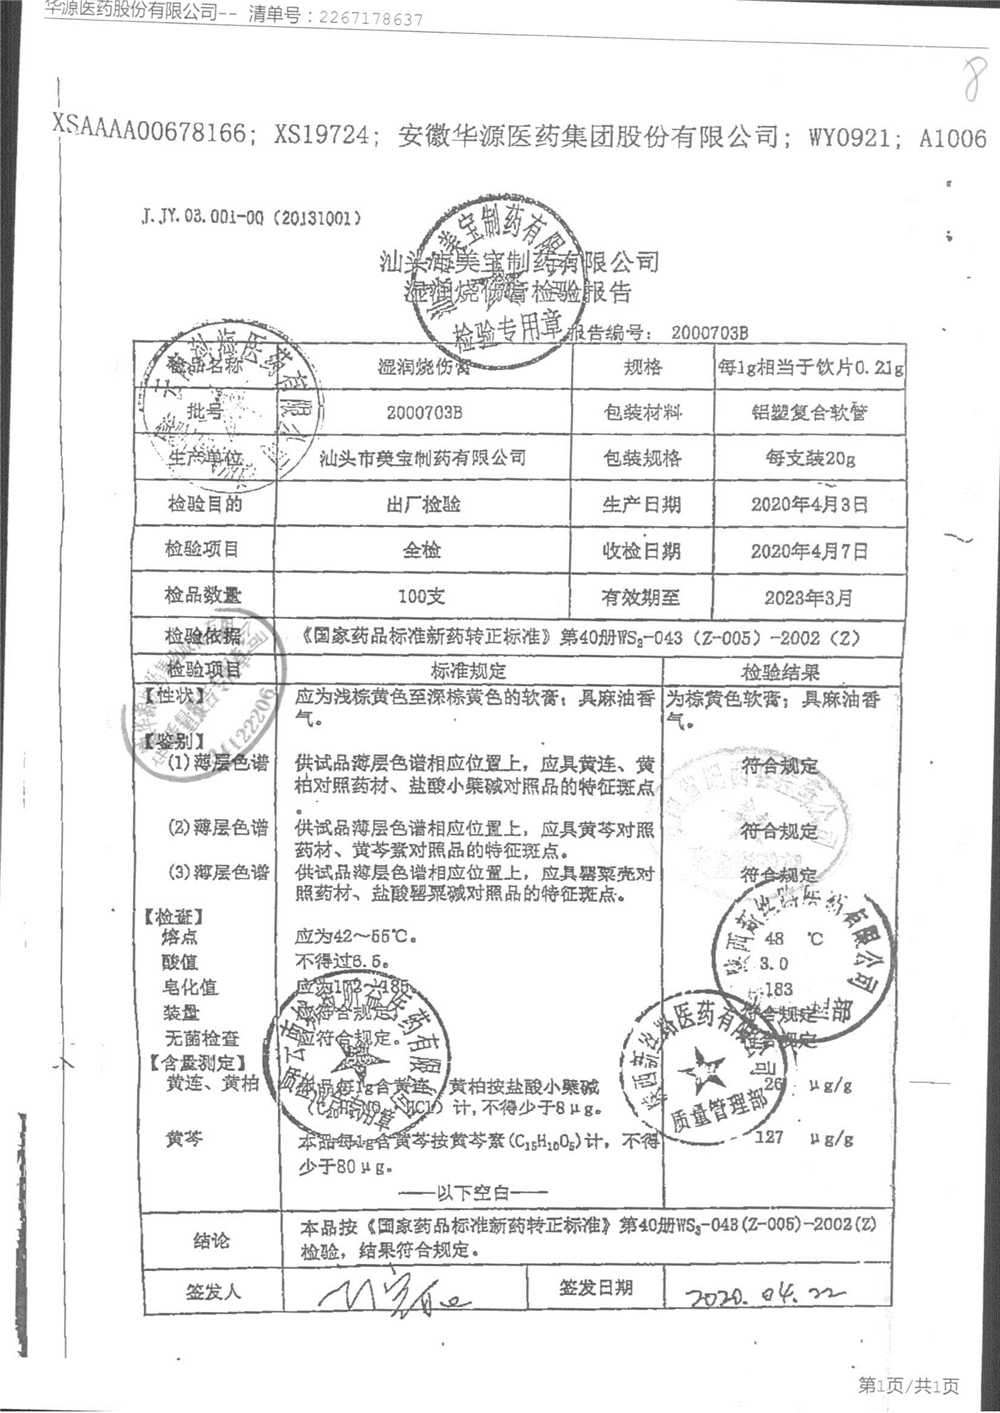 华源医药股份有限公司-- 清单号：2267178637
8
XSAAAA00678166; XS19724; 安徽华源医药集团股份有限公司; WY0921; A1006
J.JY.03.001-00 (20131001)
汕头市美宝制药有限公司
湿润烧伤膏检验报告
报告编号： 2000703B
检品名称 湿润烧伤膏 规格 每1g相当于饮片0.21g
批号 2000703B 包装材料 铝塑复合软管
生产单位 汕头市美宝制药有限公司 包装规格 每支装20g
检验目的 出厂检验 生产日期 2020年4月3日
检验项目 全检 收检日期 2020年4月7日
检品数量 100支 有效期至 2023年3月
检验依据 《国家药品标准新药转正标准》第40册WS₃-043 (Z-005) -2002 (Z)
检验项目 标准规定 检验结果
【性状】 应为浅棕黄色至深棕黄色的软膏；具麻油香 为棕黄色软膏；具麻油香
气。 气。
【鉴别】
(1)薄层色谱 供试品薄层色谱相应位置上，应具黄连、黄 符合规定
柏对照药材、盐酸小檗碱对照品的特征斑点
。
(2)薄层色谱 供试品薄层色谱相应位置上，应具黄芩对照 符合规定
药材、黄芩素对照品的特征斑点。
(3)薄层色谱 供试品薄层色谱相应位置上，应具罂粟壳对 符合规定
照药材、盐酸罂粟碱对照品的特征斑点。
【检查】
熔点 应为42～55℃。 48 ℃
酸值 不得过6.5。 3.0
皂化值 应为172～185。 183
装量 应符合规定。 符合规定
无菌检查 应符合规定。 符合规定
【含量测定】
黄连、黄柏 本品每1g含黄连、黄柏按盐酸小檗碱 26 μg/g
HCl）计，不得少于8μg。
黄芩 本品每1g含黄芩按黄芩素(C₁₅H₁₀O₅)计，不得 127 μg/g
少于80μg。
——以下空白——
结论 本品按《国家药品标准新药转正标准》第40册WS₃-043(Z-005)-2002(Z)
检验，结果符合规定。
签发人 签发日期 2020.04.22
汕头市美宝制药有限公司
检验专用章
陕西新丝路医药有限公司
质量管理部
第1页/共1页